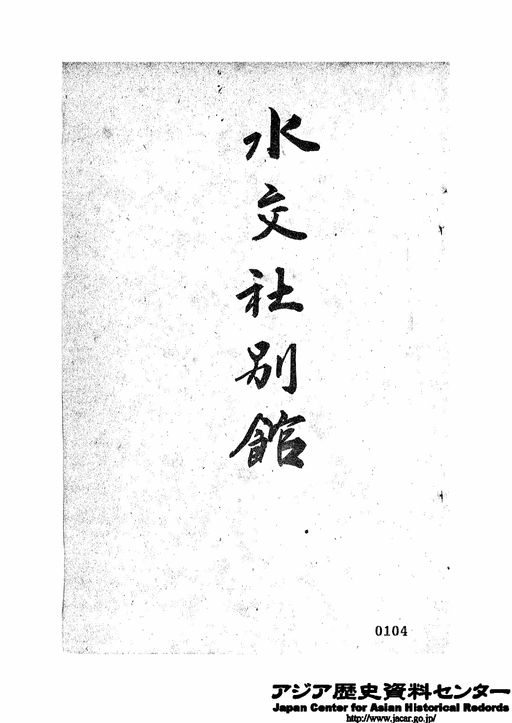 水交社別館
0104
アジア歴史資料センター
Japan Center for Asian Historical Redords
http://www.jacar.go.jp/